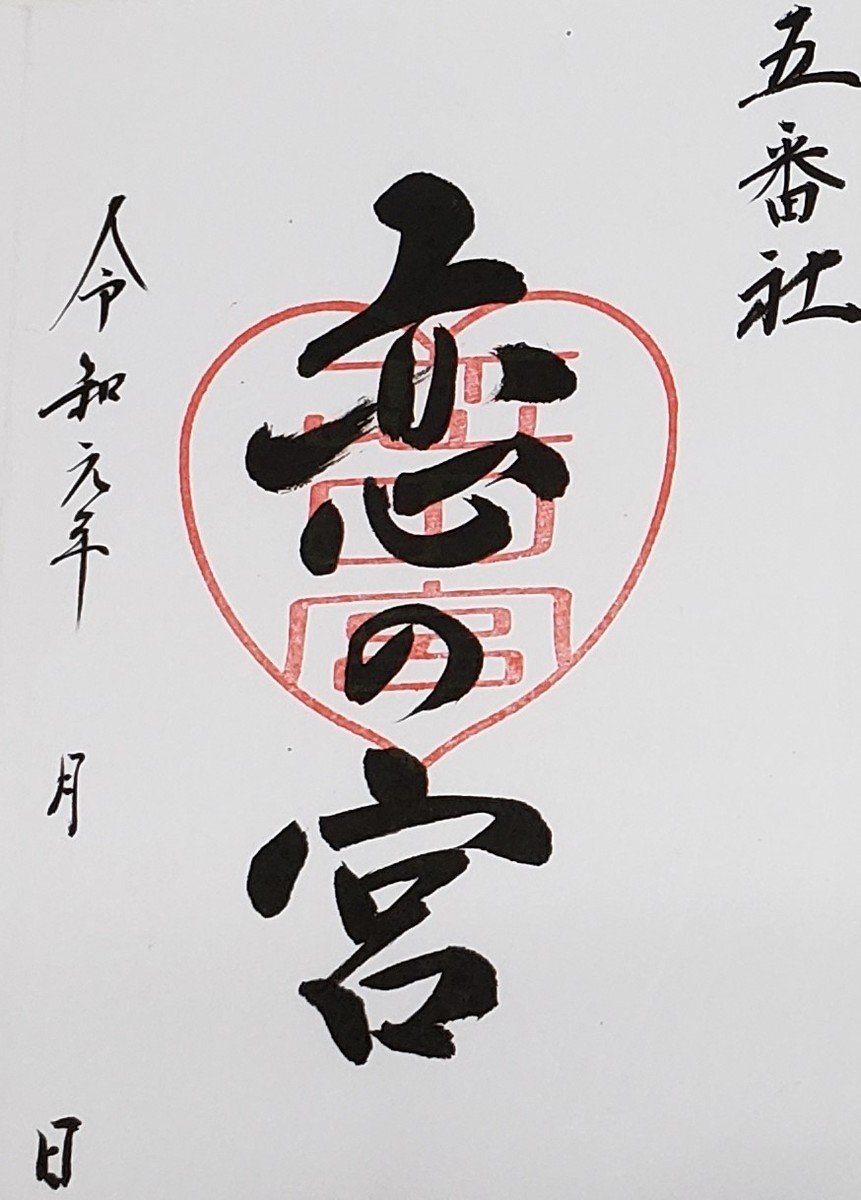 五番社
恋の宮
令和元年 月 日